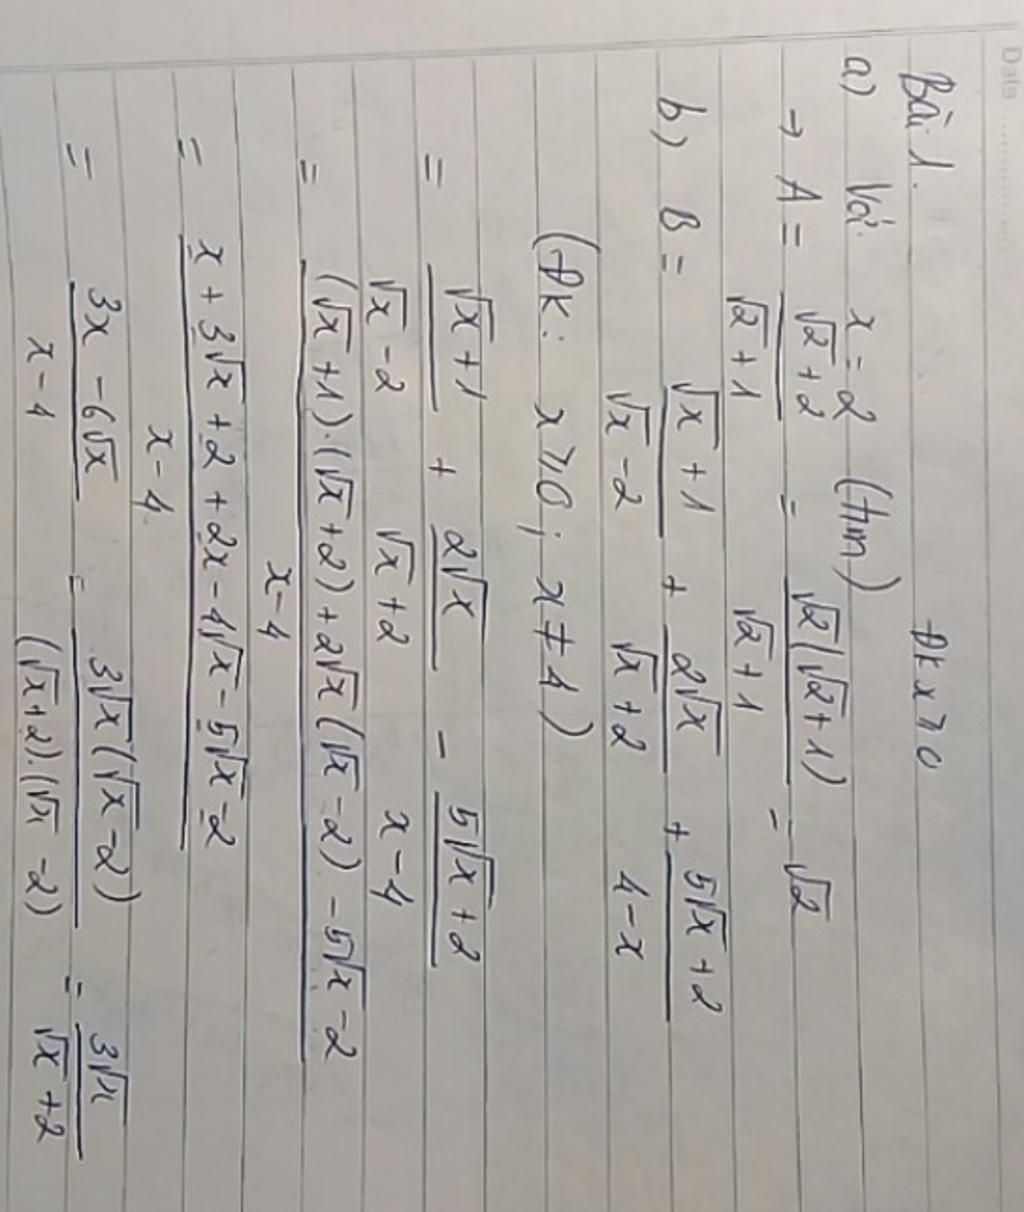 Date
Bài 1. ĐK x ⩾ 0
a) Với x = 2 (tm)
→ A = (√2 + 2)/(√2 + 1) = √2(√2 + 1)/(√2 + 1) = √2
b) B = (√x + 1)/(√x - 2) + 2√x/(√x + 2) + (5√x + 2)/(4 - x)
(ĐK: x ⩾ 0; x ≠ 4)
= (√x + 1)/(√x - 2) + 2√x/(√x + 2) - (5√x + 2)/(x - 4)
= ((√x + 1).(√x + 2) + 2√x(√x - 2) - 5√x - 2)/(x - 4)
= (x + 3√x + 2 + 2x - 4√x - 5√x - 2)/(x - 4)
= (3x - 6√x)/(x - 4) = 3√x(√x - 2)/((√x + 2).(√x - 2)) = 3√x/(√x + 2)